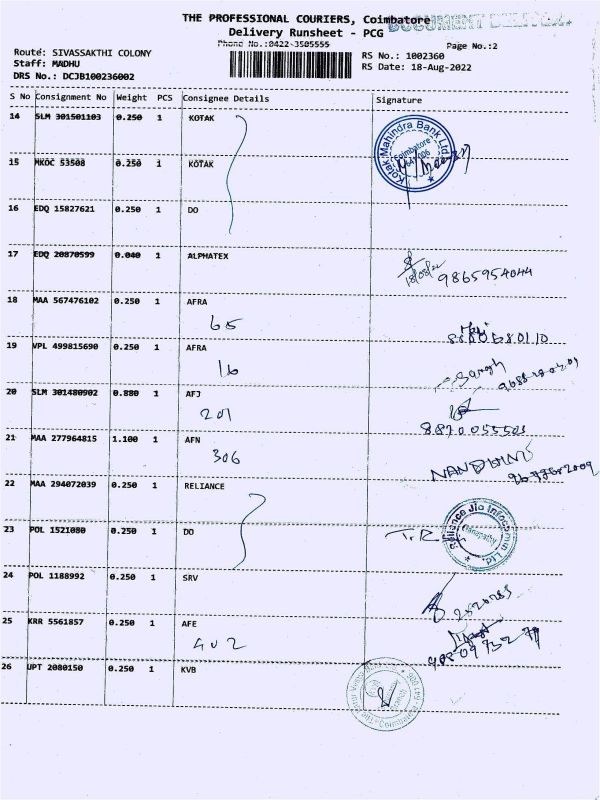 THE PROFESSIONAL COURIERS, Coimbatore
DOCUMENT
Delivery Runsheet - PCG
Phone No.:0422-3505555
Page No.:2
Route: SIVASSAKTHI COLONY
RS No.: 1002360
Staff: MADHU
RS Date: 18-Aug-2022
DRS No.: DCJB100236002
S No Consignment No Weight PCS Consignee Details Signature
14 SLM 301501103 0.250 1 KOTAK
Kotak Mahindra Bank Ltd
Coimbatore
15 MKOC 53508 0.250 1 KOTAK
16 EDQ 15827621 0.250 1 DO
17 EDQ 20870599 0.040 1 ALPHATEX
18/08/22 9865954044
18 MAA 567476102 0.250 1 AFRA
65
19 VPL 499815690 0.250 1 AFRA
16
20 SLM 301480902 0.880 1 AFJ
201
8870055503
21 MAA 277964815 1.100 1 AFN
306
NANDHINI
22 MAA 294072039 0.250 1 RELIANCE
Reliance Jio Infocomm Ltd.
Ganapathy
23 POL 1521080 0.250 1 DO
24 POL 1188992 0.250 1 SRV
25 KRR 5561857 0.250 1 AFE
402
26 UPT 2080150 0.250 1 KVB